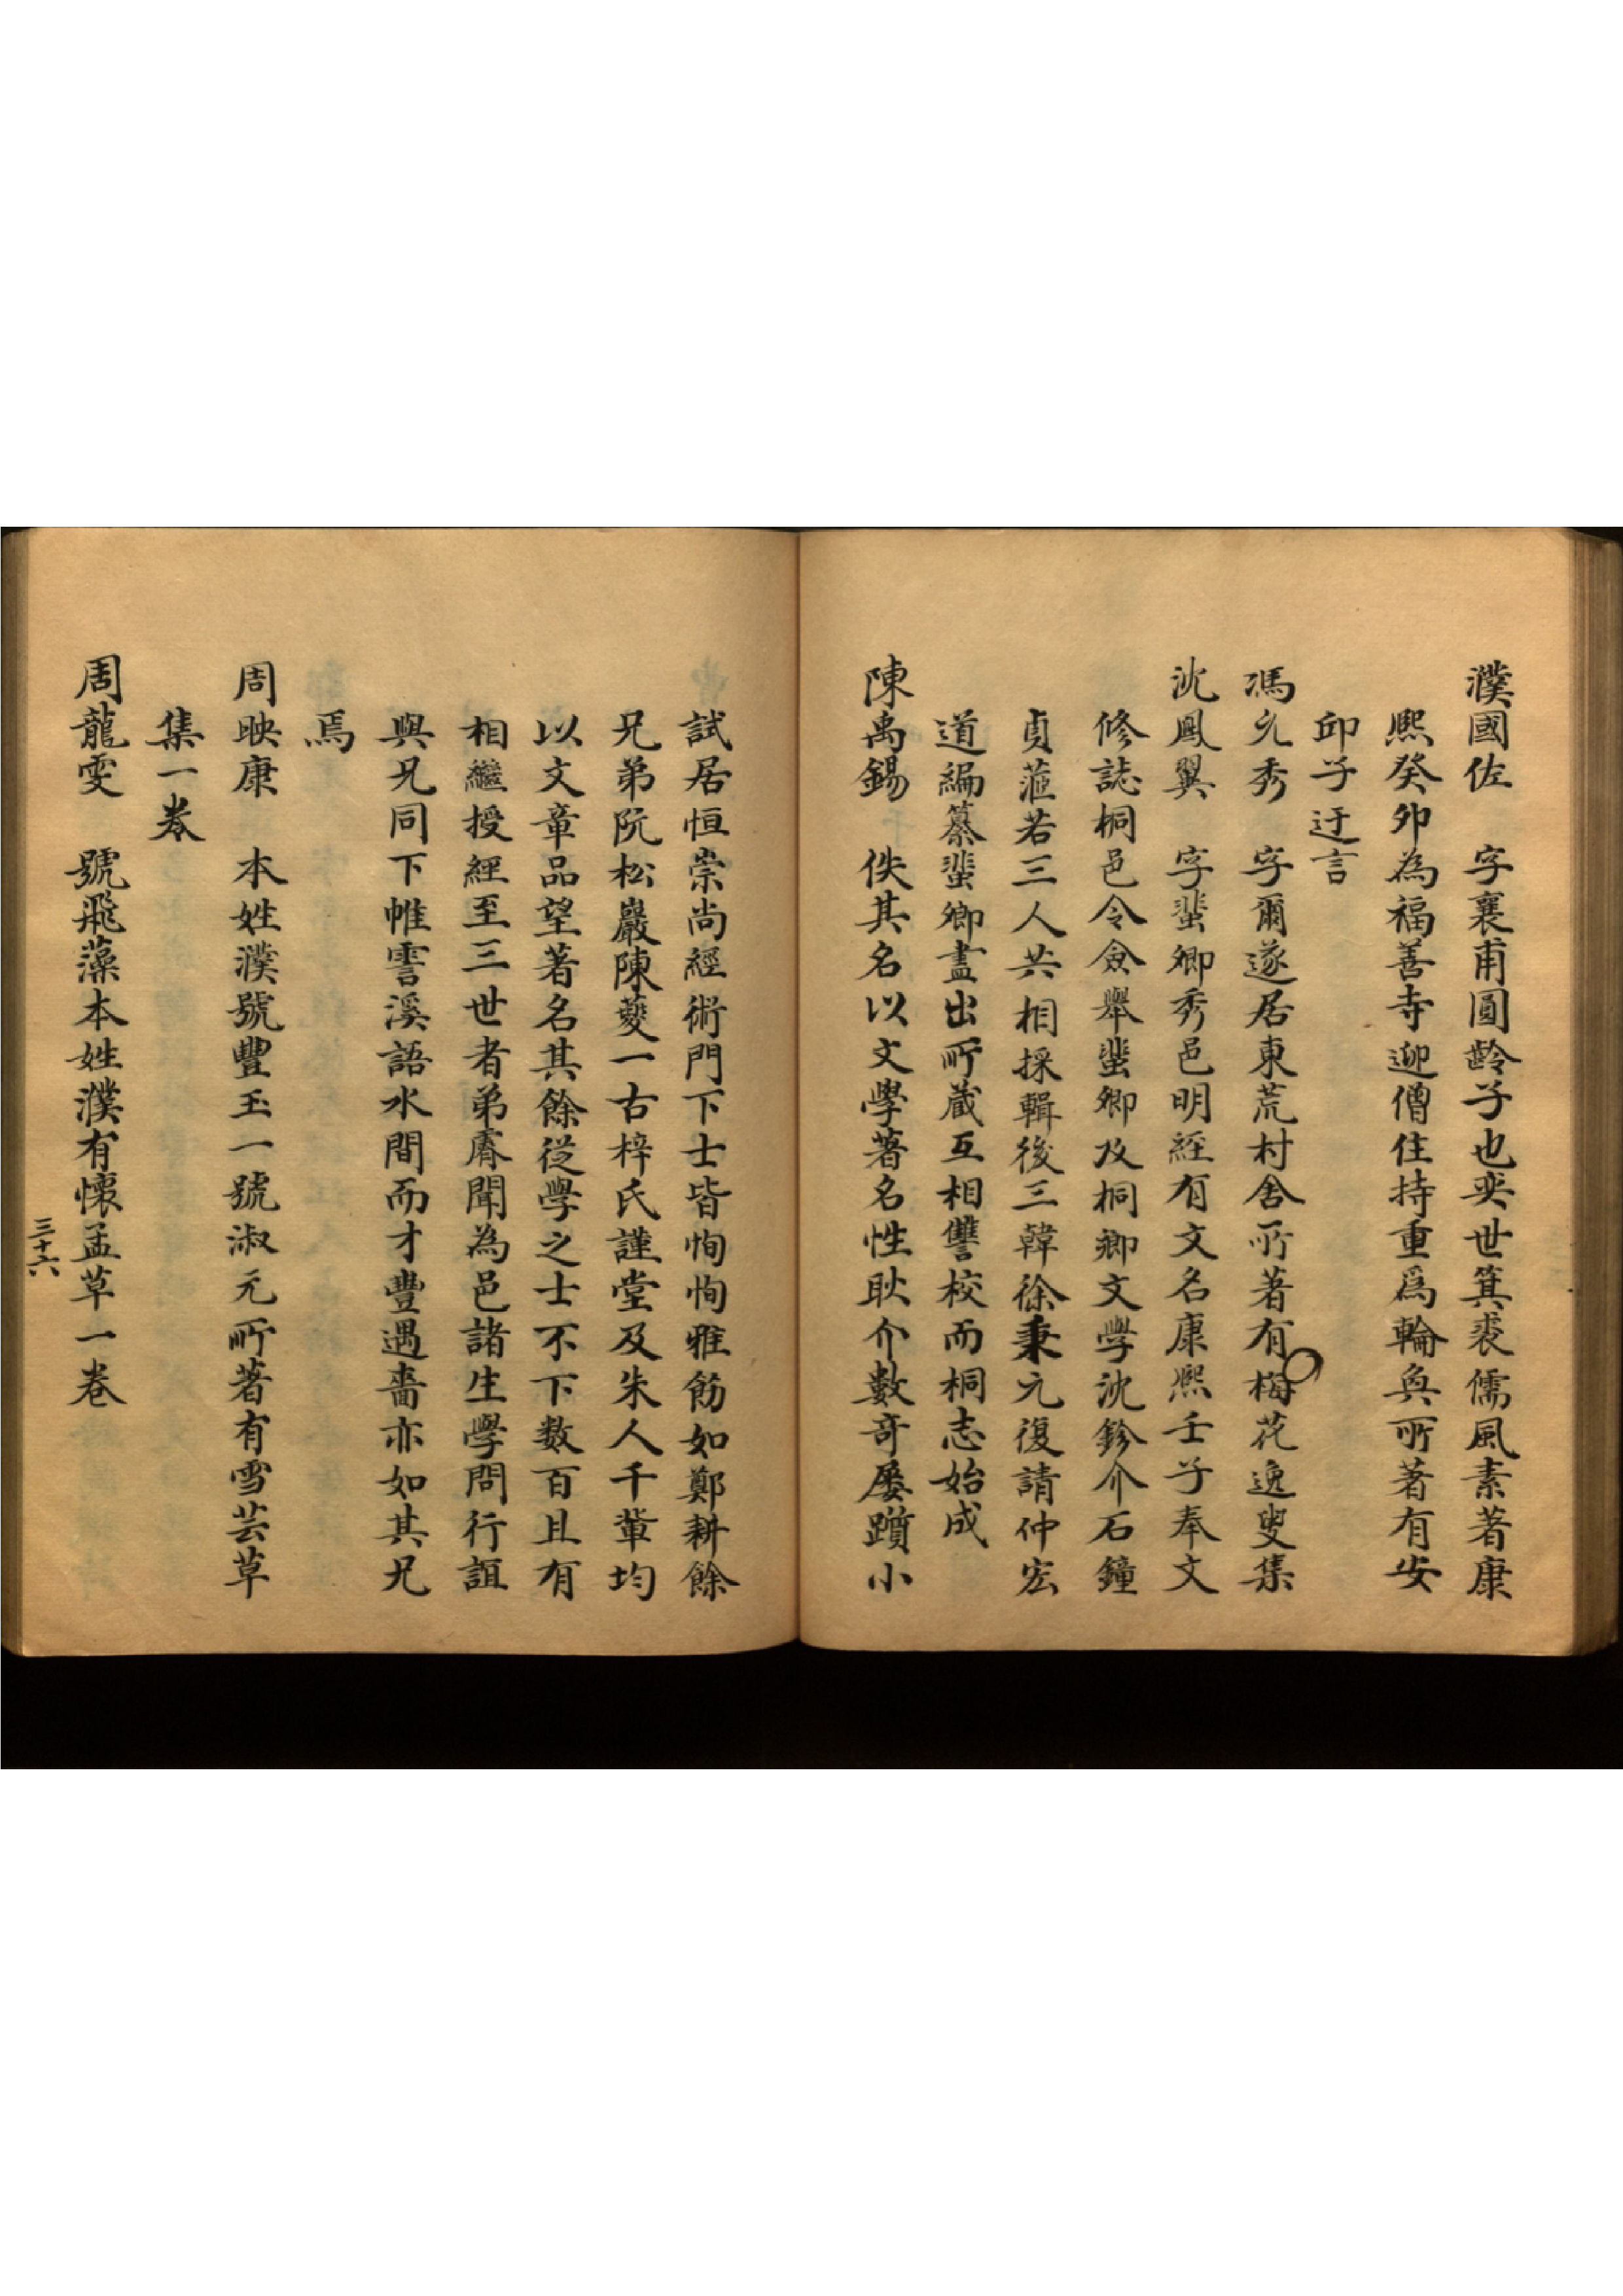 濮國佐　字襄甫圓齡子也奕世箕裘儒風素著康
熙癸卯為福善寺迎僧住持重爲輪奐所著有安
邱子迂言
馮允秀　字爾遂居東荒村舍所著有梅花逸叟集
沈鳳翼　字蜚卿秀邑明經有文名康熙壬子奉文
修誌桐邑令僉舉蜚卿及桐鄉文學沈鉁介石鐘
貞蒞若三人共相採輯後三韓徐秉元復請仲宏
道編纂蜚卿盡出所蔵互相讐校而桐志始成
陳禹錫　佚其名以文學著名性耿介數奇屡躓小
試居恒崇尚經術門下士皆恂恂雅飭如鄭耕餘
兄弟阮松巖陳夔一古梓氏謹堂及朱人千輩均
以文章品望著名其餘從學之士不下数百且有
相繼授經至三世者弟膺聞為邑諸生學問行誼
與兄同下帷霅溪語水間而才豐遇嗇亦如其兄
焉
周映康　本姓濮號豐玉一號淑元所著有雪芸草
集一卷
周龍雯　號飛藻本姓濮有懷孟草一卷
三十六